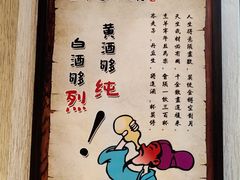 人生得意须尽欢 莫使金樽空对月
天生我材必有用 千金散尽还复来
烹羊宰牛且为乐 会须一饮三百杯
岑夫子 丹丘生 将进酒 杯莫停
黄酒够纯
白酒够烈!